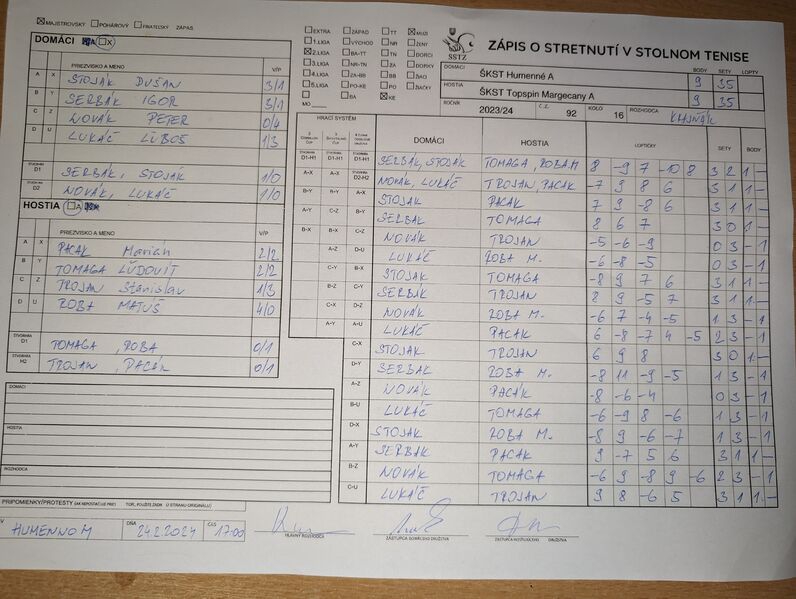 MAJSTROVSKÝ POHÁROVÝ PRIATEĽSKÝ ZÁPAS
DOMÁCI A X
PRIEZVISKO A MENO V/P
A X STOJÁK DUŠAN 3/1
B Y SERBÁK IGOR 3/1
C Z NOVÁK PETER 0/4
D U LUKÁČ ĽUBOŠ 1/3
ŠTVORHRA D1 SERBÁK, STOJAK 1/0
ŠTVORHRA D2 NOVÁK, LUKÁČ 1/0
HOSTIA A X
PRIEZVISKO A MENO V/P
A X PACÁK Marián 2/2
B Y TOMAGA ĽUDOVÍT 2/2
C Z TROJAN Stanislav 1/3
D U ROBA MATÚŠ 4/0
ŠTVORHRA D1 TOMAGA, ROBA 0/1
ŠTVORHRA H2 TROJAN, PACÁK 0/1
DOMÁCI
HOSTIA
ROZHODCA
PRIPOMIENKY/PROTESTY (AK NEPOSTAČUJE PRIESTOR, POUŽITE ZADNÚ STRANU ORIGINÁLU)
V HUMENNOM DŇA 24.2.2024 ČAS 17:00
HLAVNÝ ROZHODCA ZÁSTUPCA DOMÁCEHO DRUŽSTVA ZÁSTUPCA HOSŤUJÚCEHO DRUŽSTVA
EXTRA ZÁPAD TT MUŽI
1.LIGA VÝCHOD NR ŽENY
2.LIGA BA-TT TN DORCI
3.LIGA NR-TN ZA DORKY
4.LIGA ZA-BB BB ŽIACI
5.LIGA PO-KE PO ŽIAČKY
BA KE
MO
SSTZ
ZÁPIS O STRETNUTÍ V STOLNOM TENISE
BODY SETY LOPTY
DOMÁCI ŠKST Humenné A 9 35
HOSTIA ŠKST Topspin Margecany A 9 35
ROČNÍK 2023/24 Č.Z. 92 KOLO 16 ROZHODCA
HRACÍ SYSTÉM DOMÁCI HOSTIA LOPTIČKY SETY BODY
D1-H1 D1-H1 D1-H1 SERBÁK, STOJAK TOMAGA, ROBA M 8 -9 7 -10 8 3 2 1 -
A-X A-X D2-H2 NOVÁK, LUKÁČ TROJAN, PACAK -7 9 8 6 3 1 1 -
B-Y B-Y A-X STOJAK PACAK 7 9 -8 6 3 1 1 -
A-Y C-Z B-Y SERBAK TOMAGA 8 6 7 3 0 1 -
B-X B-X C-Z NOVÁK TROJAN -5 -6 -9 0 3 - 1
A-Z D-U LUKÁČ ROBA M. -6 -8 -5 0 3 - 1
C-Y B-X STOJAK TOMAGA -8 9 7 6 3 1 1 -
B-Z C-Y SERBAK TROJAN 8 9 -5 7 3 1 1 -
C-X D-Z NOVÁK ROBA M. -6 7 -4 -5 1 3 - 1
A-Y A-U LUKÁČ PACAK 6 -8 -7 4 -5 2 3 - 1
C-X STOJAK TROJAN 6 9 8 3 0 1 -
D-Y SERBAK ROBA M. -8 11 -9 -5 1 3 - 1
A-Z NOVÁK PACÁK -8 -6 -4 0 3 - 1
B-U LUKÁČ TOMAGA -6 -9 8 -6 1 3 - 1
D-X STOJAK ROBA M. -8 9 -6 -7 1 3 - 1
A-Y SERBAK PACAK 9 -7 5 6 3 1 1 -
B-Z NOVÁK TOMAGA -6 9 -8 9 -6 2 3 - 1
C-U LUKÁČ TROJAN 9 8 -6 5 3 1 1 -